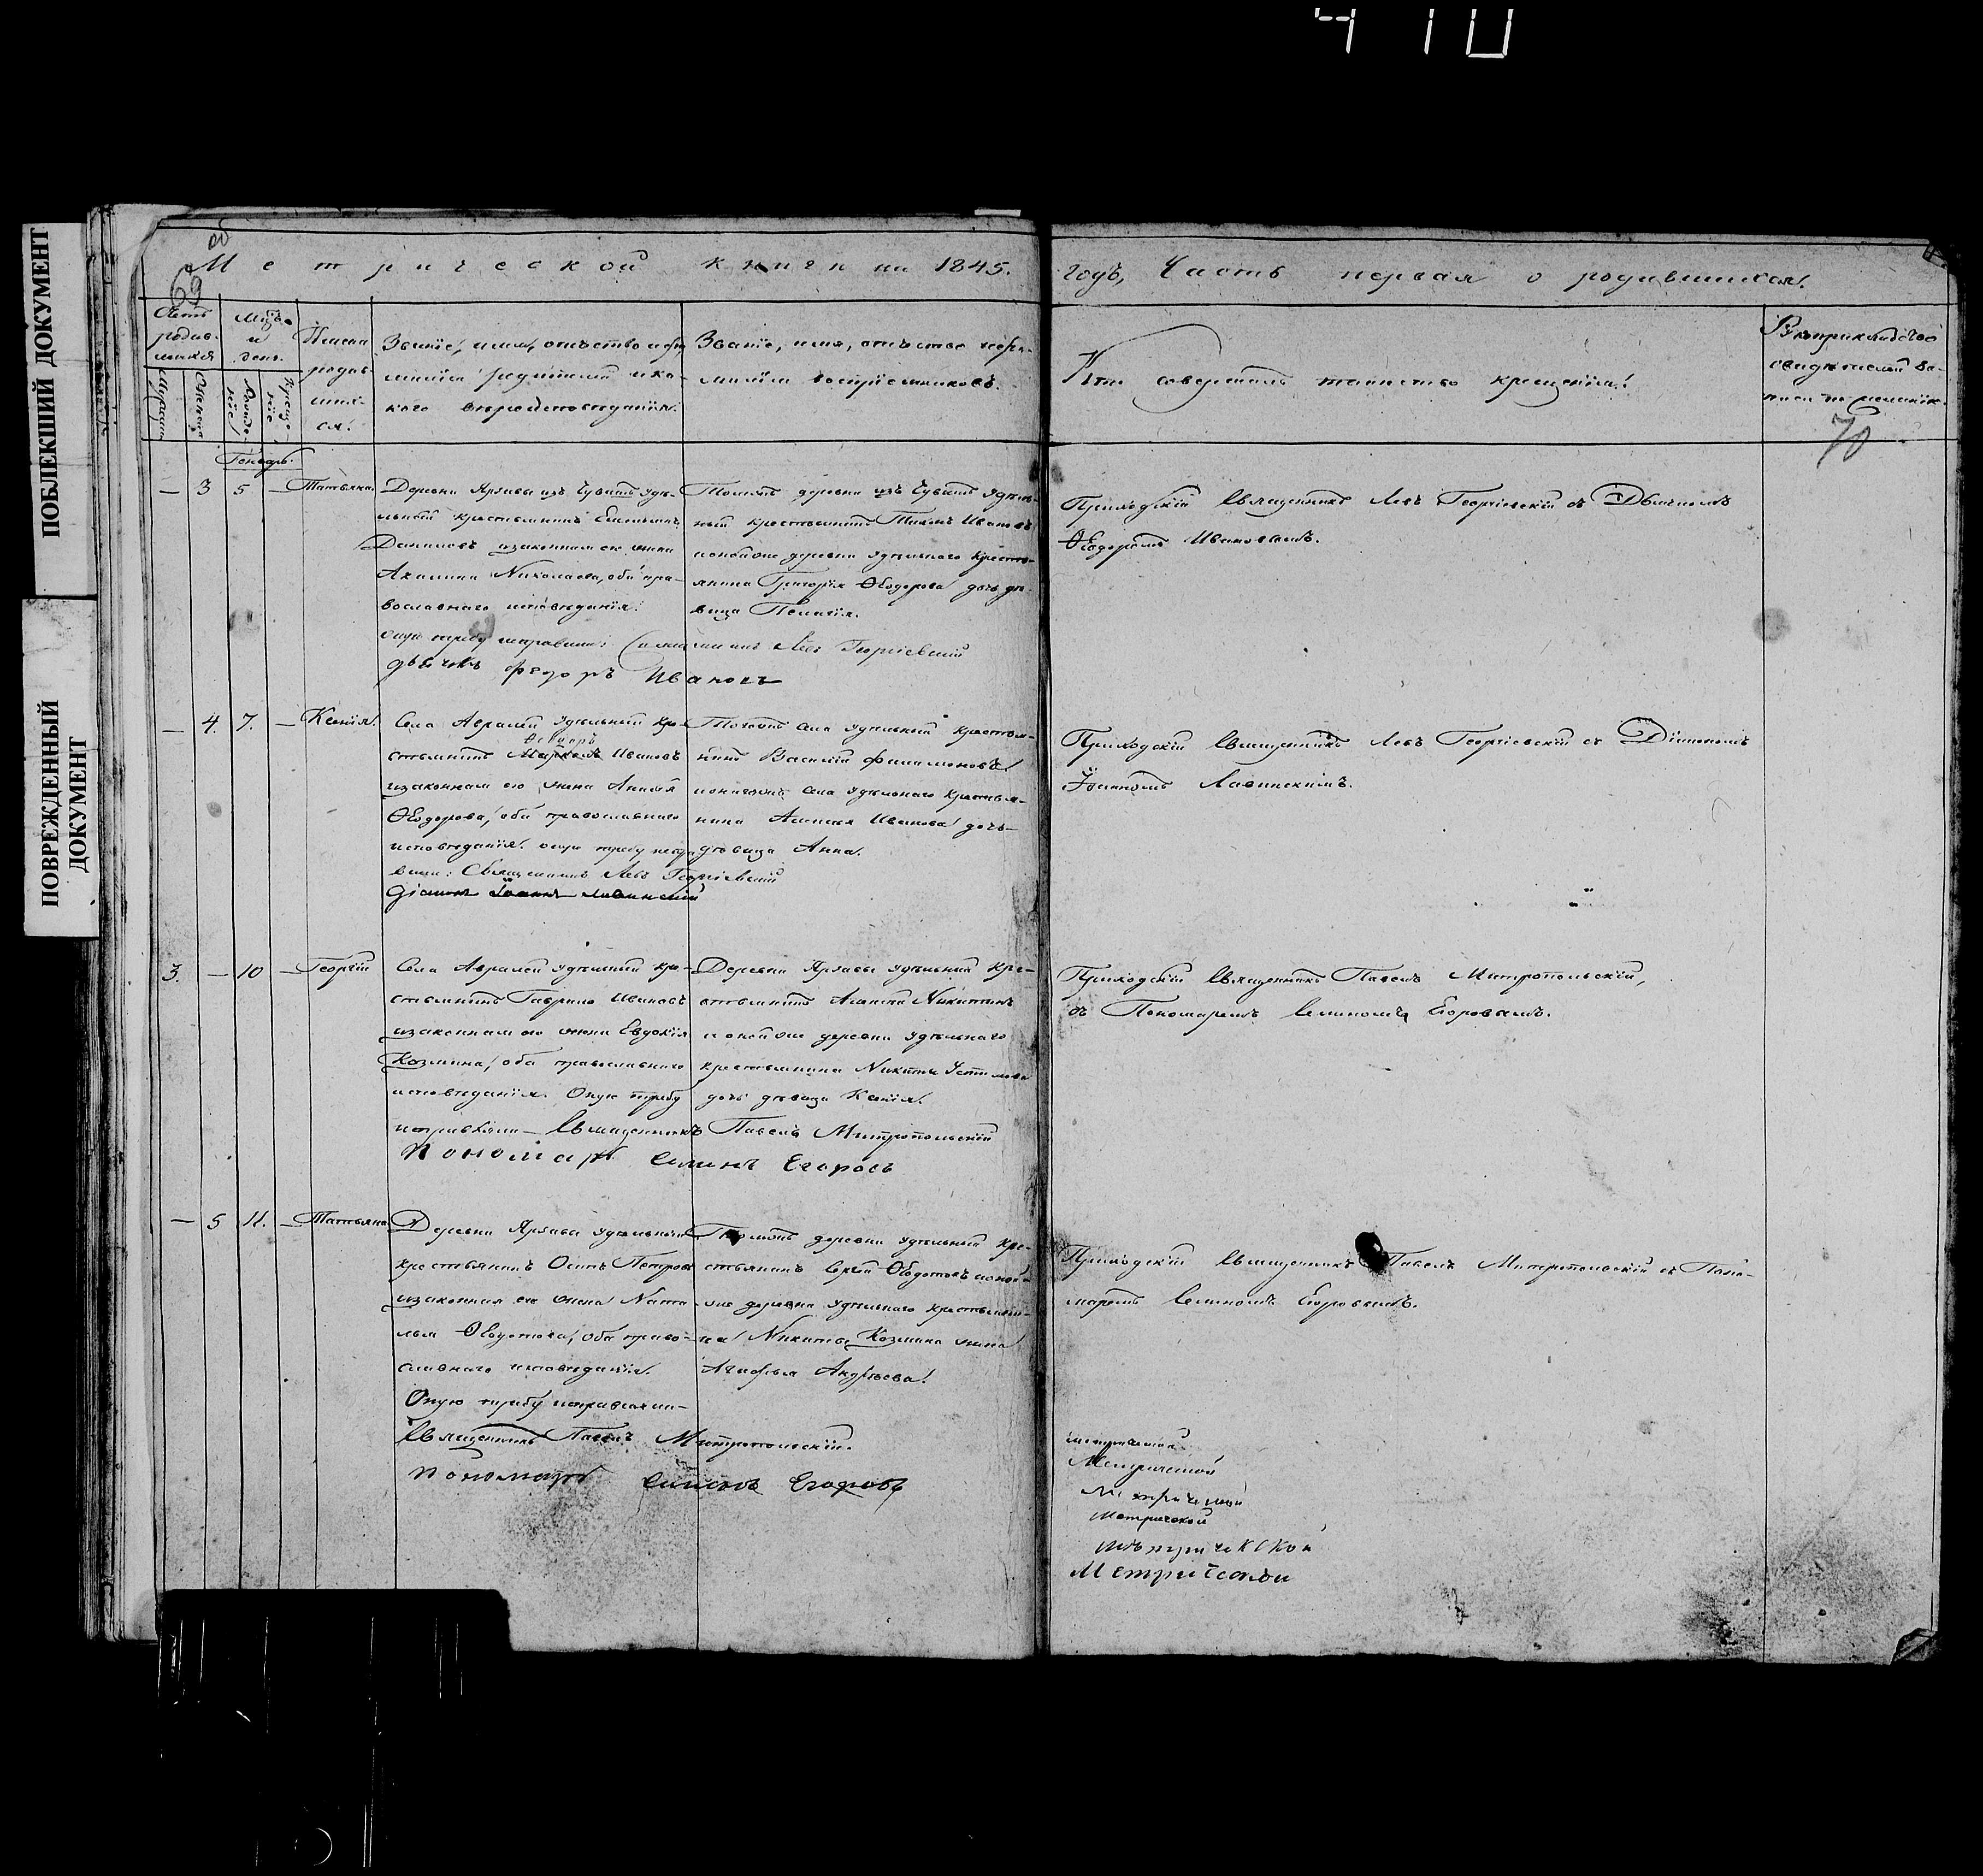 4 10
ПОБЛЕКШИЙ ДОКУМЕНТ
ПОВРЕЖДЕННЫЙ
ДОКУМЕНТ
об
69
Метрической книги на 1845.
годъ, Часть первая о родившихся.
Счетъ
родив-
шихся
Мужескъ
Женска
и
день.
Рожде-
ніе
Креще-
ніе
Имена
родив-
ших-
ся.
Званіе, имя, отчество и фа-
милія родителей и ка-
кого вѣроисповѣданія.
Званіе, имя, отчество и фа-
милія воспріемниковъ.
Кто совершалъ таинство крещенія.
Рукоприкладство
свидѣтелей за-
писи по желанію.
70
Генварь.
— 3 5 — Татьяна
Деревни изъ Чувашъ удѣ-
льный крестьянинъ Емельянъ
Даниловъ и законная его жена
Акилина Николаева, оба пра-
вославнаго исповѣданія.
Тоежъ деревни изъ Чувашъ удѣль-
ный крестьянинъ Ивановъ
и оной же деревни удѣльнаго кресть-
янина Григорія Ѳеодорова дочь дѣ-
вица Пелагія.
Приходскій Священникъ Левъ Георгіевскій съ Дьячкомъ
Ѳеодоромъ Ивановымъ.
оную требу исправили: Священникъ Левъ Георгіевскій
дьячекъ Федоръ Ивановъ
— 4. 7. — Ксенія.
Села удѣльный кре-
Ѳедоръ
стьянинъ Ивановъ
и законная его жена
Ѳеодорова, оба православнаго
исповѣданія. оную требу испра-
вили: Священникъ Левъ Георгіевскій
Діаконъ Іоаннъ Лавинскій
Тогожъ села удѣльный крестья-
нинъ Василій Филимоновъ
и оногожъ села удѣльнаго крестья-
нина Алексѣя Иванова дочь
дѣвица Анна.
Приходскій Священникъ Левъ Георгіевскій съ Діакономъ
Іоанномъ Лавинскимъ.
3. — 10 — Георгій
Села удѣльный кре-
стьянинъ Гаврило Ивановъ
и законная его жена Евдокія
Козмина, оба православнаго
исповѣданія. Оную требу
исправляли — Священникъ Павелъ Митропольскій
Пономарь Симонъ Егоровъ
Деревни удѣльный кре-
стьянинъ Никитинъ
и оной же деревни удѣльнаго
крестьянина Никиты
дочь дѣвица Ксенія.
Приходскій Священникъ Павелъ Митропольскій,
съ Пономаремъ Симономъ Егоровымъ.
— 5 11. — Татьяна
Деревни удѣльный
крестьянинъ Осипъ Петровъ
и законная его жена Ната-
лья Ѳедотова, оба право-
славнаго исповѣданія.
Оную требу исправляли —
Священникъ Павелъ Митропольскій.
Пономарь Симонъ Егоровъ
Тоежъ деревни удѣльный кре-
стьянинъ Сергій Ѳедотовъ и оной
же деревни удѣльнаго крестьяни-
на Никиты Козмина жена
Агафья Андреева.
Приходскій Священникъ Павелъ Митропольскій съ Поно-
маремъ Симономъ Егоровымъ.
Метрической
Метрической